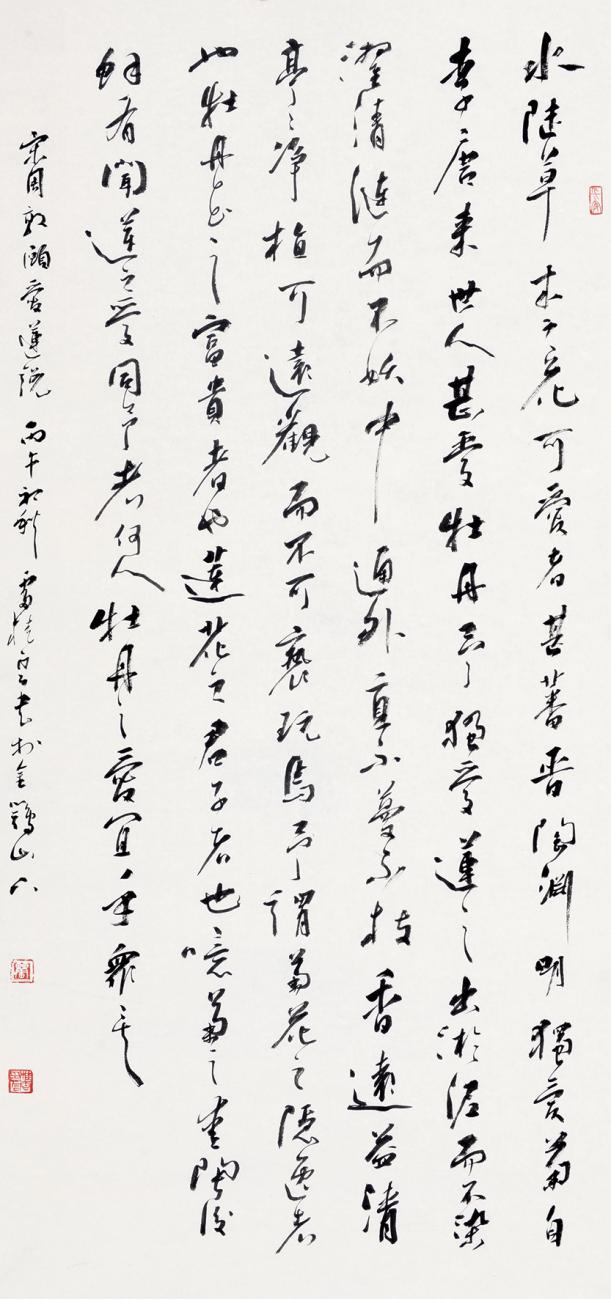 水陸草木之花可愛者甚蕃晉陶淵明獨愛菊自
李唐來世人甚愛牡丹予獨愛蓮之出淤泥而不染
濯清漣而不妖中通外直不蔓不枝香遠益清
亭亭净植可遠觀而不可褻玩焉予謂菊花之隱逸者
也牡丹花之富貴者也蓮花之君子者也噫菊之愛陶後
鮮有聞蓮之愛同予者何人牡丹之愛宜乎衆矣
宋周敦頤愛蓮説 丙午初秋 書於金鷄山下